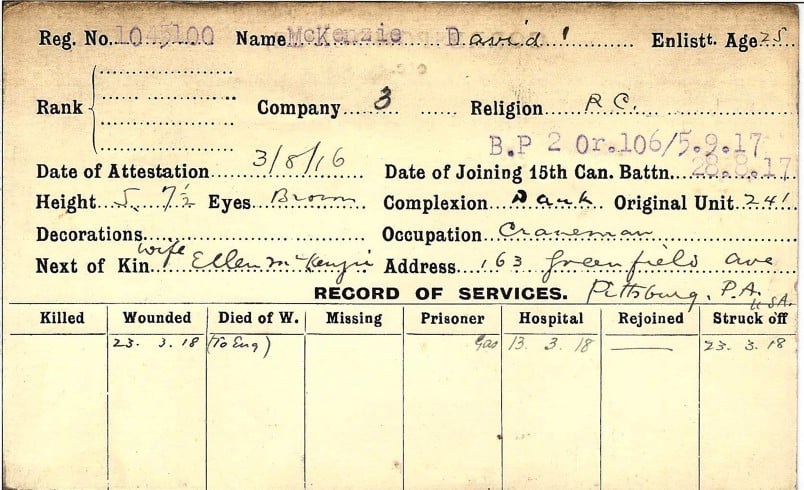 Reg. No. 1043100 Name McKenzie David Enlistt. Age 25
Rank Company 3 Religion R.C.
B.P 2 Or.106/5.9.17
Date of Attestation 3/8/16 Date of Joining 15th Can. Battn. 28.8.17
Height 5. 7½ Eyes Brown Complexion Dark Original Unit 241
Decorations Occupation Craneman
Next of Kin wife Ellen McKenzie Address 163 Greenfield Ave
RECORD OF SERVICES. Pittsburg, P.A. USA.
Killed Wounded Died of W. Missing Prisoner Hospital Rejoined Struck off
23. 3. 18 (To Eng) Gas 13. 3. 18 23. 3. 18